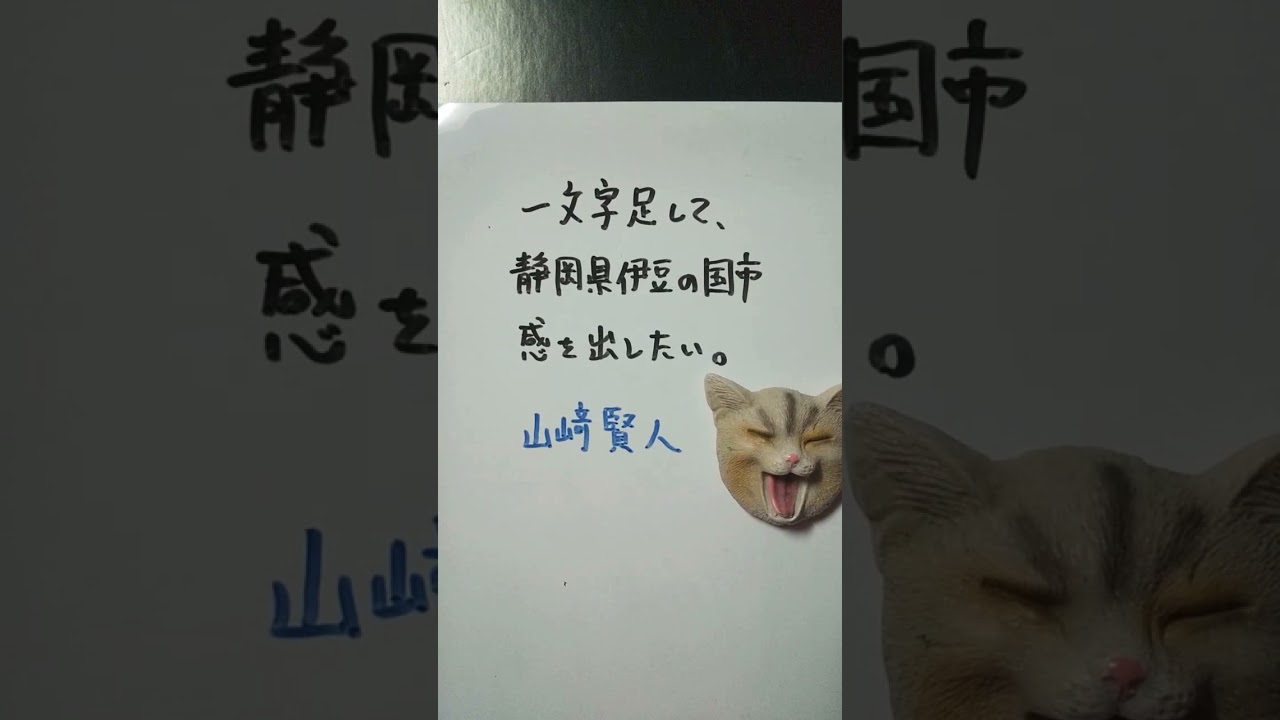 一文字足して、
静岡県伊豆の国市
感を出したい。
山﨑賢人